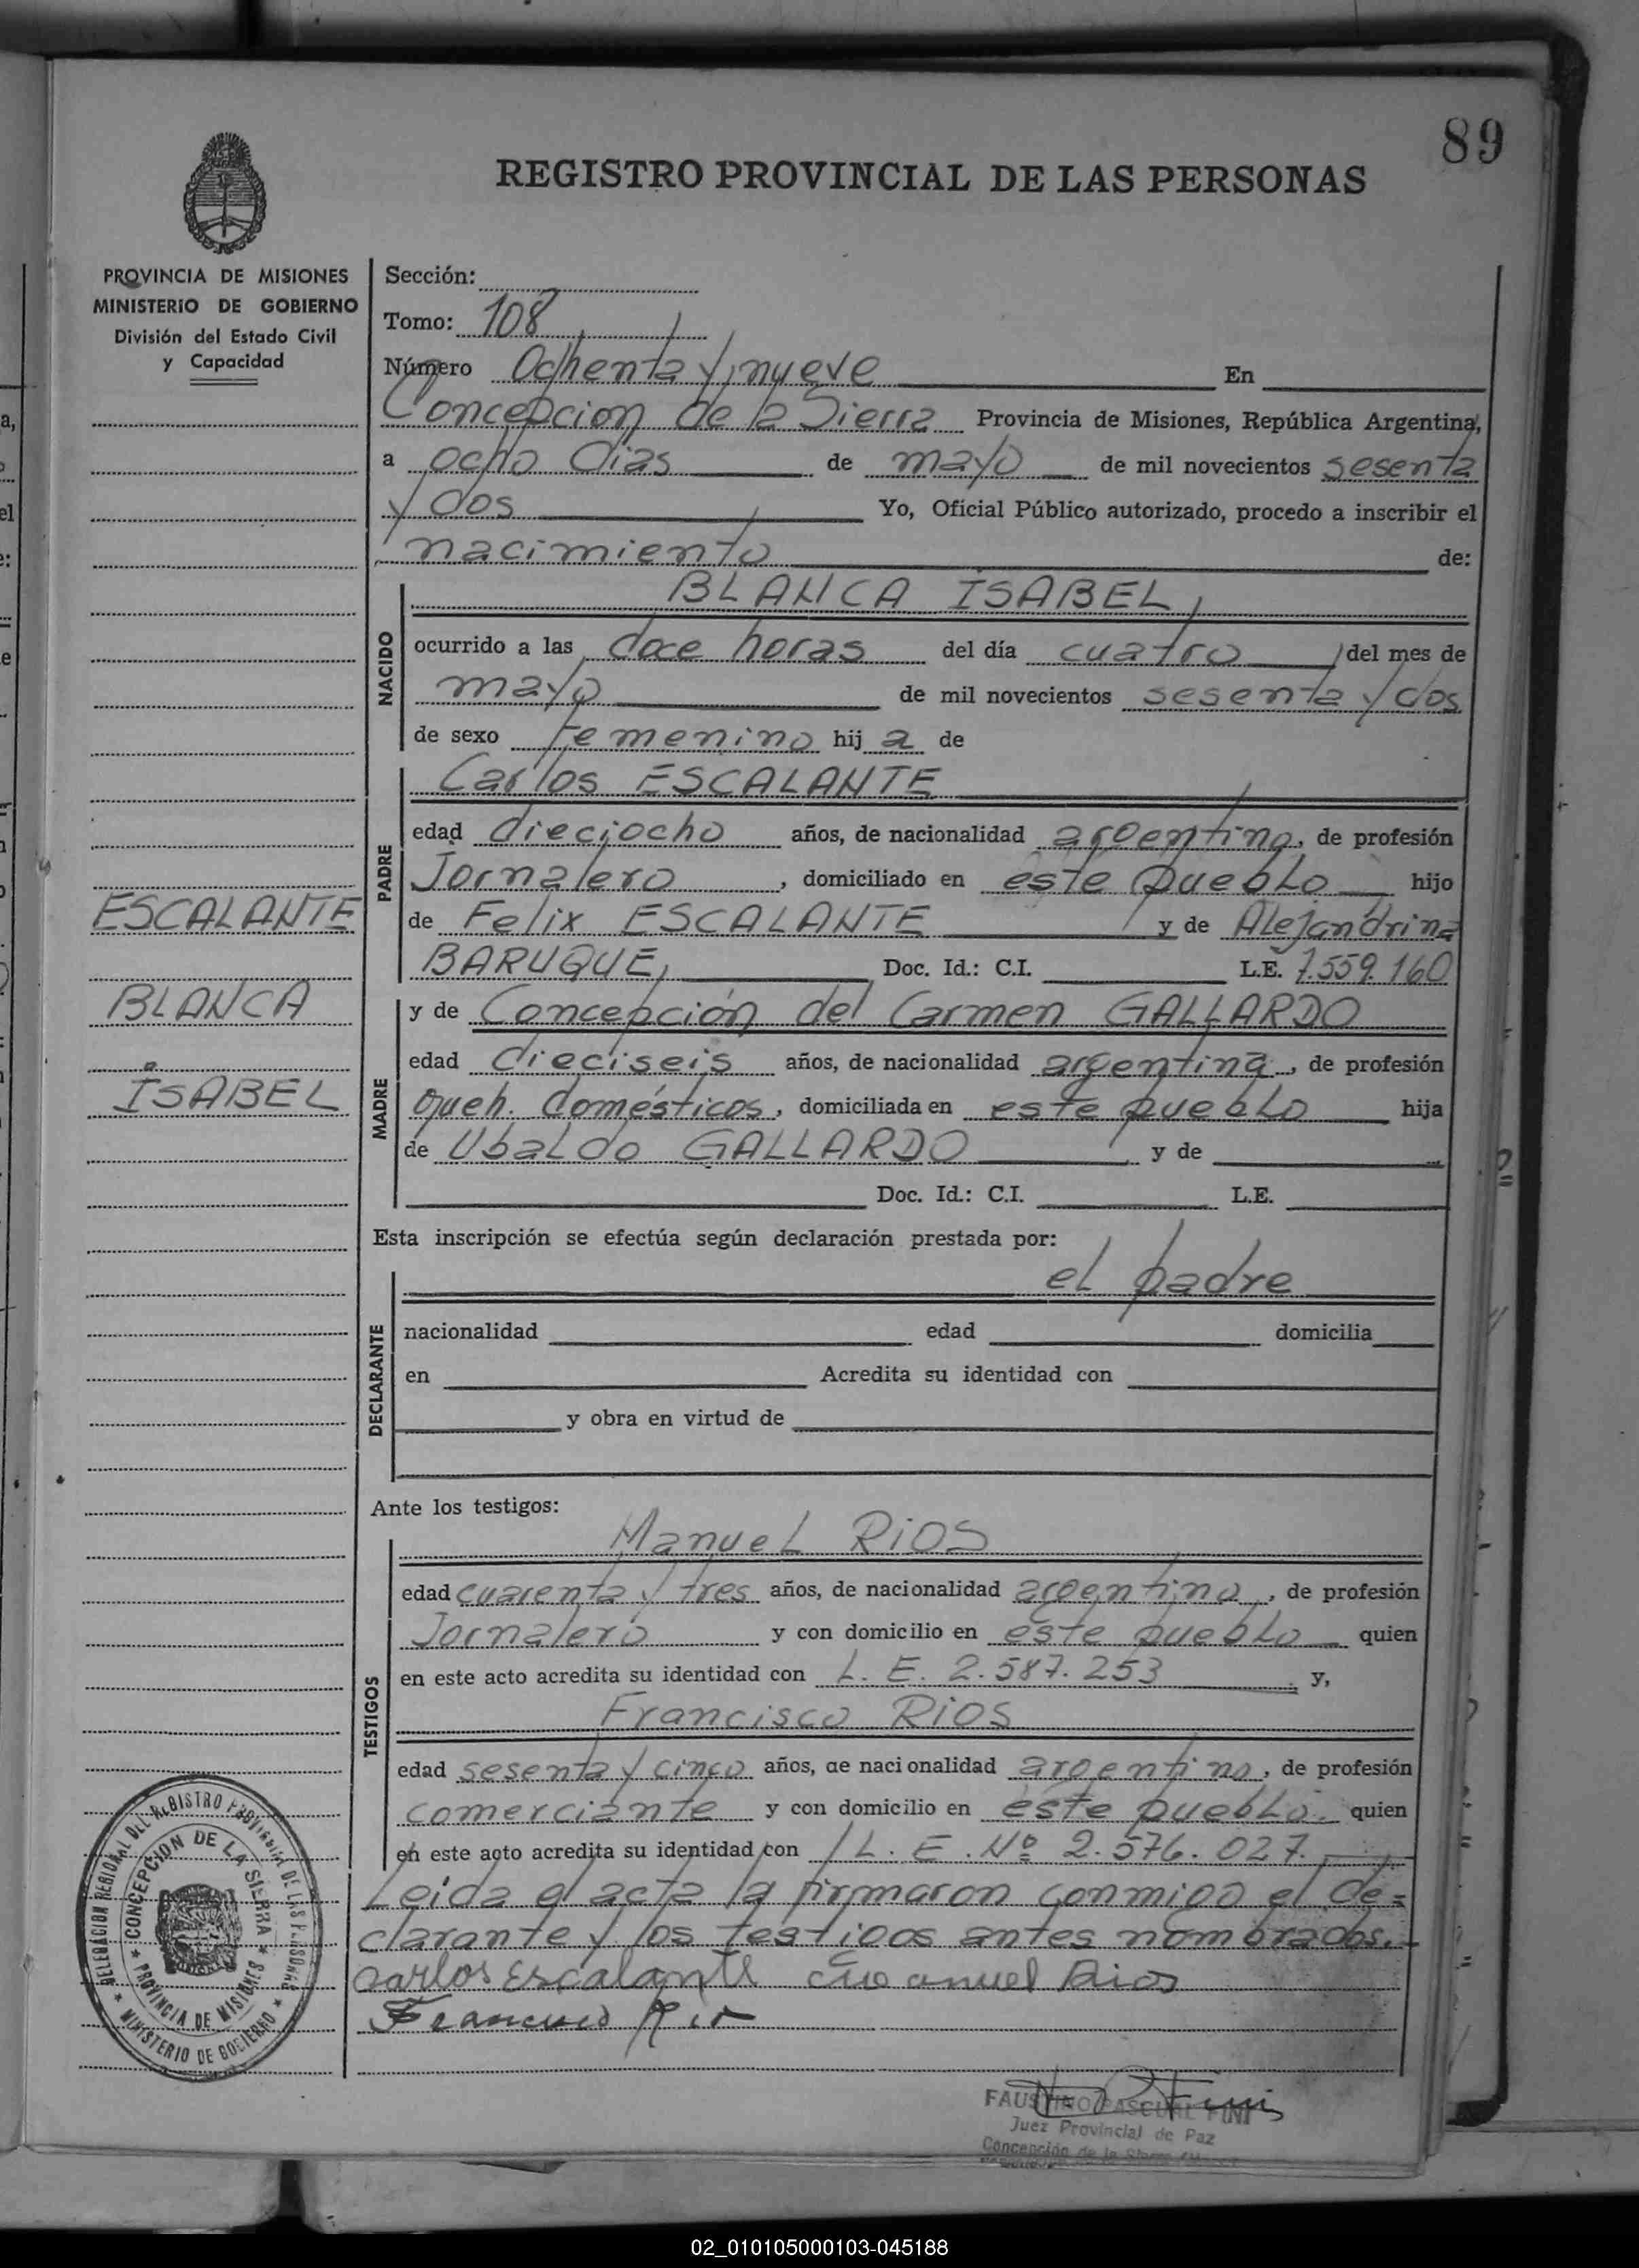 89
REGISTRO PROVINCIAL DE LAS PERSONAS
PROVINCIA DE MISIONES
MINISTERIO DE GOBIERNO
División del Estado Civil
y Capacidad
ESCALANTE
BLANCA
ISABEL
Sección:
Tomo: 108
Número Ochenta y nueve En
Concepcion de la Sierra Provincia de Misiones, República Argentina,
a ocho dias de mayo de mil novecientos sesenta
y dos Yo, Oficial Público autorizado, procedo a inscribir el
nacimiento de:
NACIDO
BLANCA ISABEL,
ocurrido a las doce horas del día cuatro del mes de
mayo de mil novecientos sesenta y dos
de sexo femenino hij a de
PADRE
Carlos ESCALANTE
edad dieciocho años, de nacionalidad argentino, de profesión
Jornalero, domiciliado en este pueblo hijo
de Felix ESCALANTE y de Alejandrina
BARUQUE, Doc. Id.: C.I. L.E. 7.559.160
MADRE
y de Concepción del Carmen GALLARDO
edad dieciseis años, de nacionalidad argentina, de profesión
queh. domésticos, domiciliada en este pueblo hija
de Ubaldo GALLARDO y de
Doc. Id.: C.I. L.E.
Esta inscripción se efectúa según declaración prestada por:
DECLARANTE
el padre
nacionalidad edad domicilia
en Acredita su identidad con
y obra en virtud de
Ante los testigos:
TESTIGOS
Manuel RIOS
edad cuarenta y tres años, de nacionalidad argentino, de profesión
Jornalero y con domicilio en este pueblo quien
en este acto acredita su identidad con L. E. 2.587.253 y,
Francisco RIOS
edad sesenta y cinco años, de nacionalidad argentino, de profesión
comerciante y con domicilio en este pueblo. quien
en este acto acredita su identidad con L. E. Nº 2.576.027.
Leida el acta la firmaron conmigo el de=
clarante y los testigos antes nombrados.-
carlos Escalante Manuel Rios
Francisco Rios
DELEGACION REGIONAL DEL REGISTRO PROVINCIAL DE LAS PERSONAS
* MINISTERIO DE GOBIERNO *
CONCEPCION DE LA SIERRA
* PROVINCIA DE MISIONES *
FAUSTINO PASCUAL FINI
Juez Provincial de Paz
Concepción de la Sierra
02_010105000103-045188